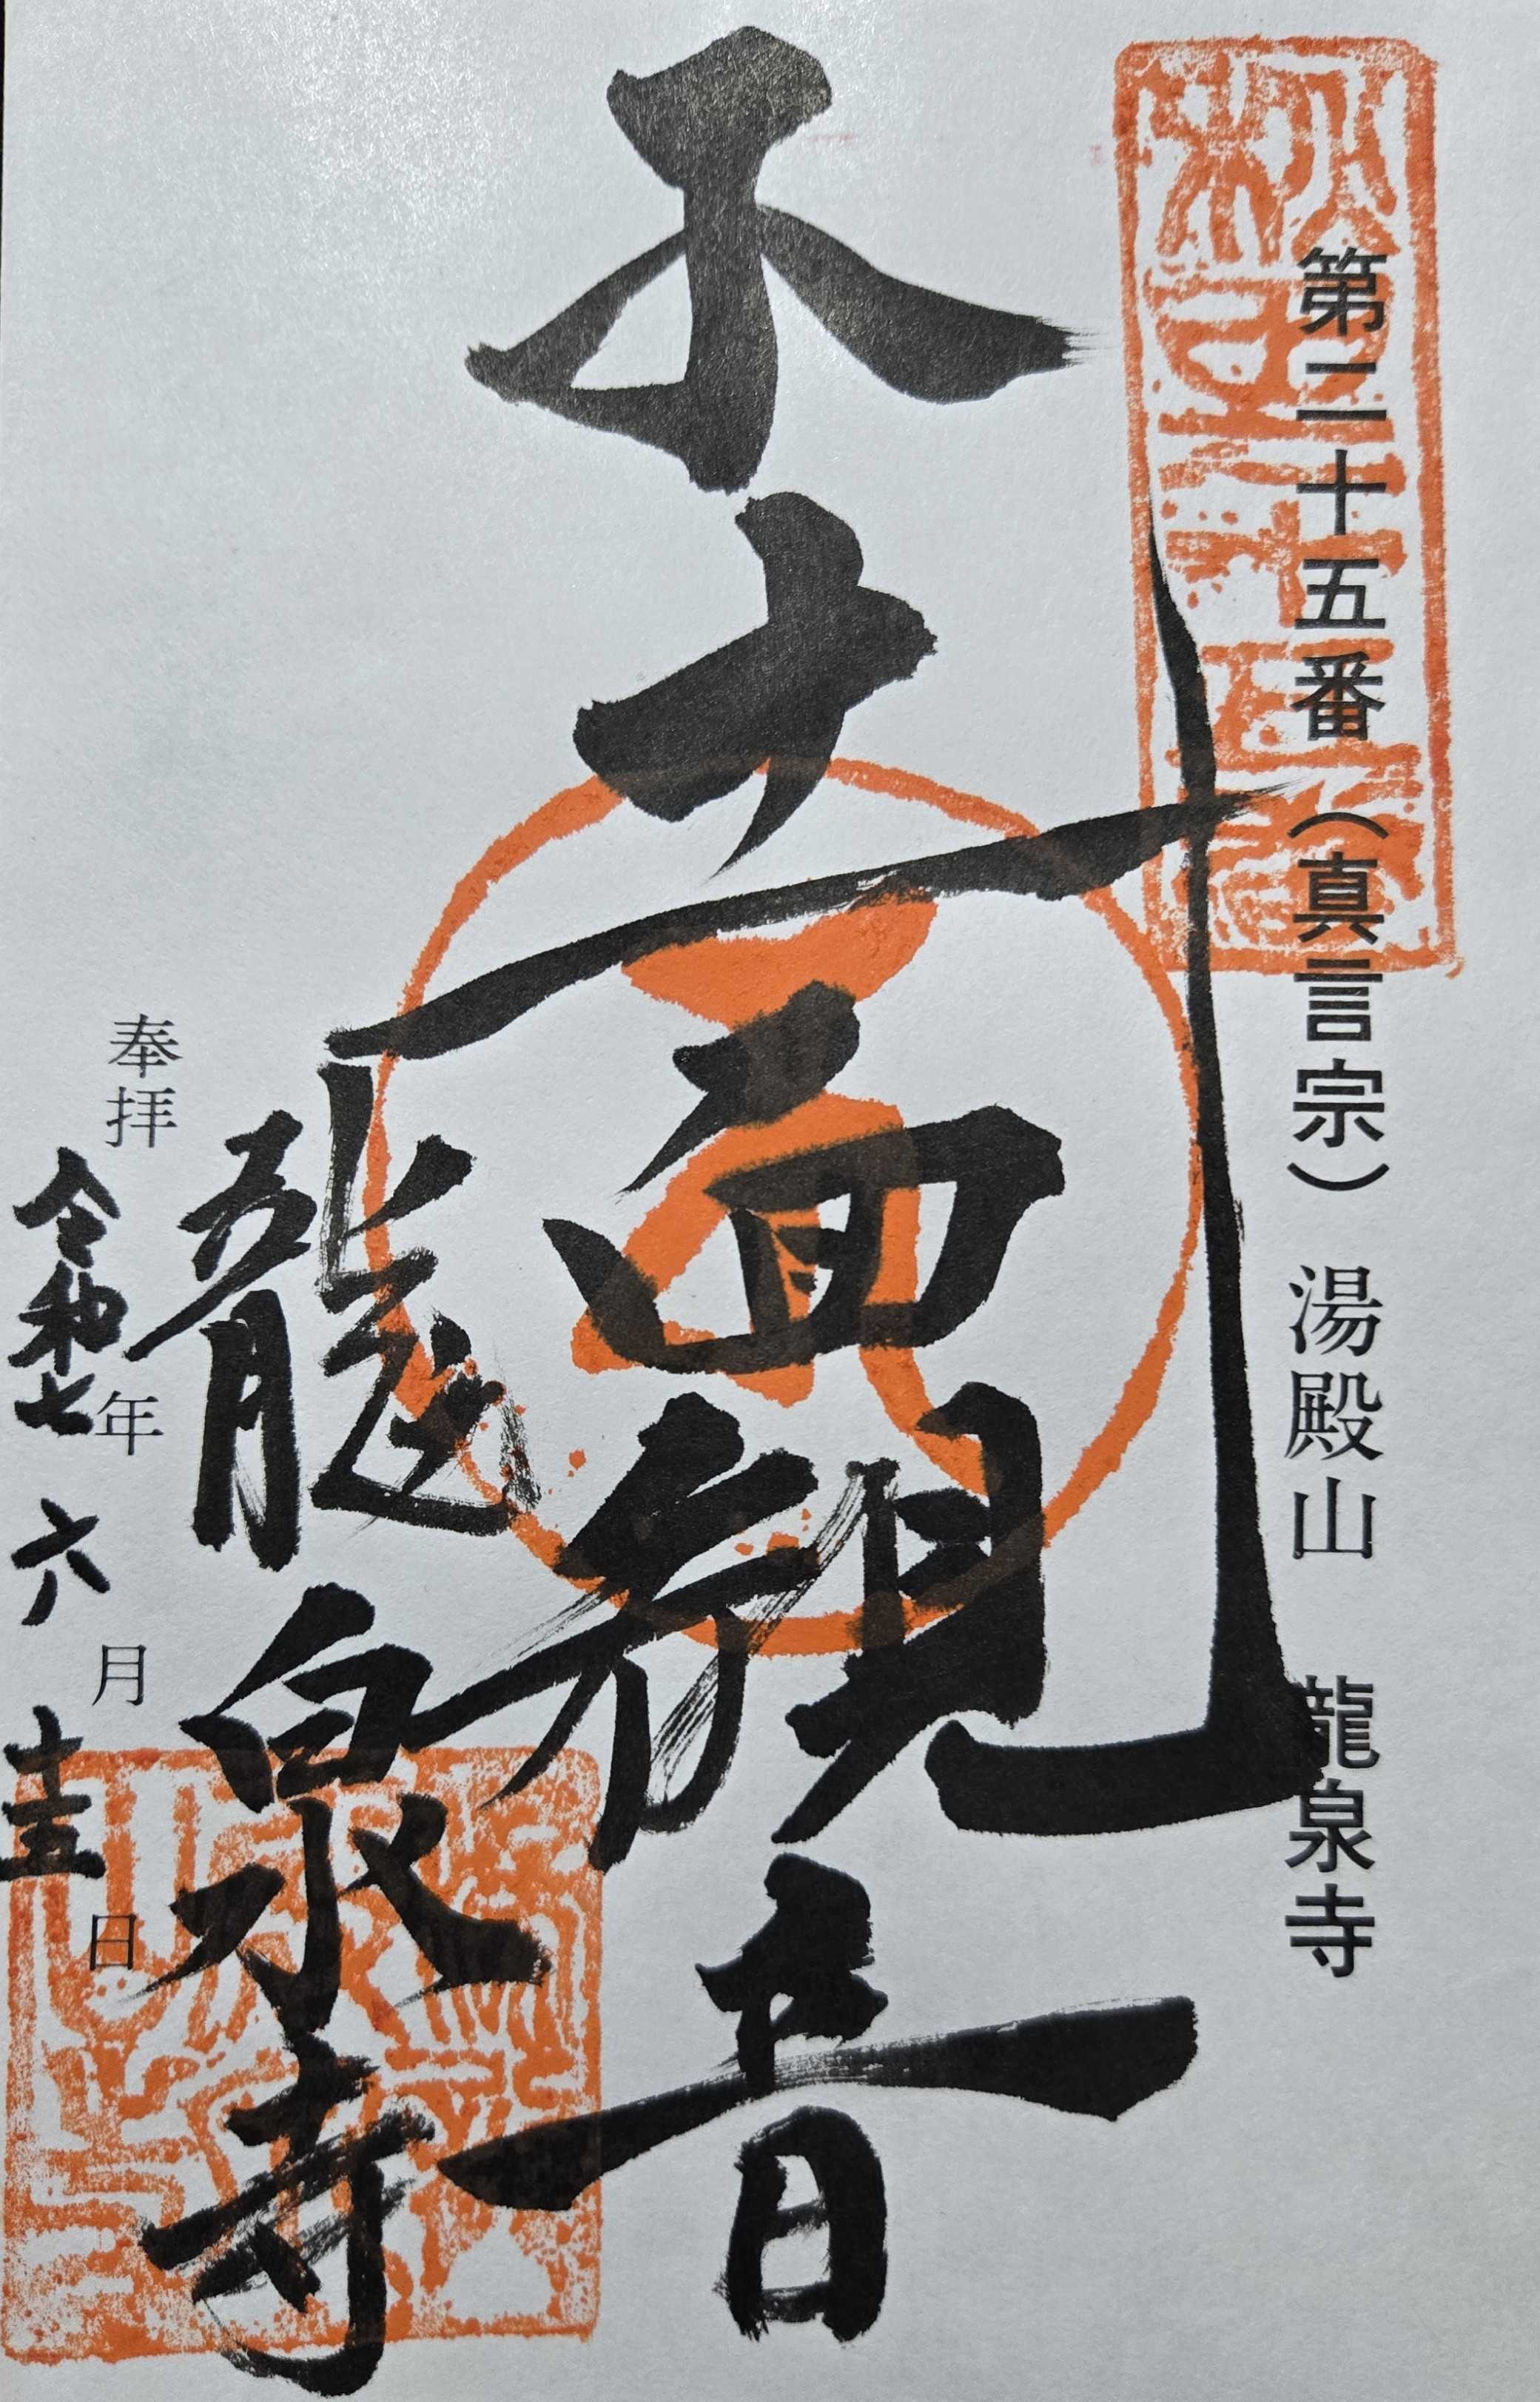 第二十五番(真言宗) 湯殿山 龍泉寺
十一面観音
龍泉寺
奉拝 令和七年六月十五日